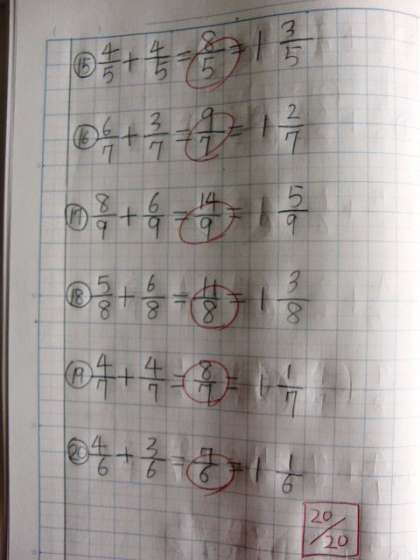 ⑮ 4/5 + 4/5 = 8/5 = 1 3/5
⑯ 6/7 + 3/7 = 9/7 = 1 2/7
⑰ 8/9 + 6/9 = 14/9 = 1 5/9
⑱ 5/8 + 6/8 = 11/8 = 1 3/8
⑲ 4/7 + 4/7 = 8/7 = 1 1/7
⑳ 4/6 + 3/6 = 7/6 = 1 1/6
20/20